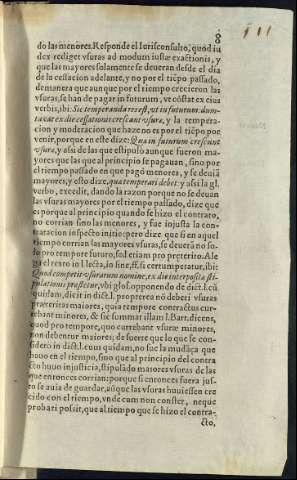 8
do las menores. Responde el Iurisconsulto, quod iu
dex rediget vsuras ad modum iustæ exactionis, y
que las mayores solamente se deueran desde el dia
de la cessacion adelante, y no por el tiẽpo passado,
demanera que aunque por el tiempo crecieron las
vsuras, se han de pagar in futurum, vt cõstat ex eius
verbis, ibi: Sic temperanda res est, vt in futurum dum-
taxat ex die cessationis crescant vsuræ, y la tempera-
cion y moderacion que haze no es por el tiẽpo por
venir, porque en este dize: Qua in futurum crescunt
vsuræ, y assi de las que estipulò aunque fueron ma-
yores que las que al principio se pagauan, sino por
el tiempo passado en que pagò menores, y se deuiã
mayores, y esto dize, qua temperari debet: y assi la gl.
verbo, excedit, dando la razon porque no se deuan
las vsuras mayores por el tiempo passado, dize que
es porque al principio quando se hizo el contrato,
no corrian sino las menores, y fue injusta la con-
tratacion inspecto initio: pero dize que si en aquel
tiempo corrian las mayores vsuras, se deuerã no so-
lo pro tempore futuro, sol etiam pro præterito. Ale
ga el texto in l. lecta, in fine, ff. si certum petatur, ibi:
Quod competit vsurarum nomine, ex die interposita sti-
pulationis præstetur, vbi glos. opponendo de dict. l. cũ
quidam, dicit in dict. l. propterea nõ deberi vsuras
præteritas maiores, quia tempore contractus cur-
rebant minores, & sic summat illam l. Bart. dicens,
quod pro tempore, quo currebant vsuræ minores,
non debentur maiores; de suerte que lo que se con-
siderò in dict. l. cum quidam, no fue la mudãça que
huuo en el tiempo, sino que al principio del contra
cto huuo injusticia, stipulãdo maiores vsuras de las
que entonces corrian: porque si entonces fuera jus-
to se auia de guardar, aũque las vsuras huuiessen cre
cido con el tiempo, vnde cum non constet, neque
probari possit, que al tiempo que se hizo el contra-
cto,